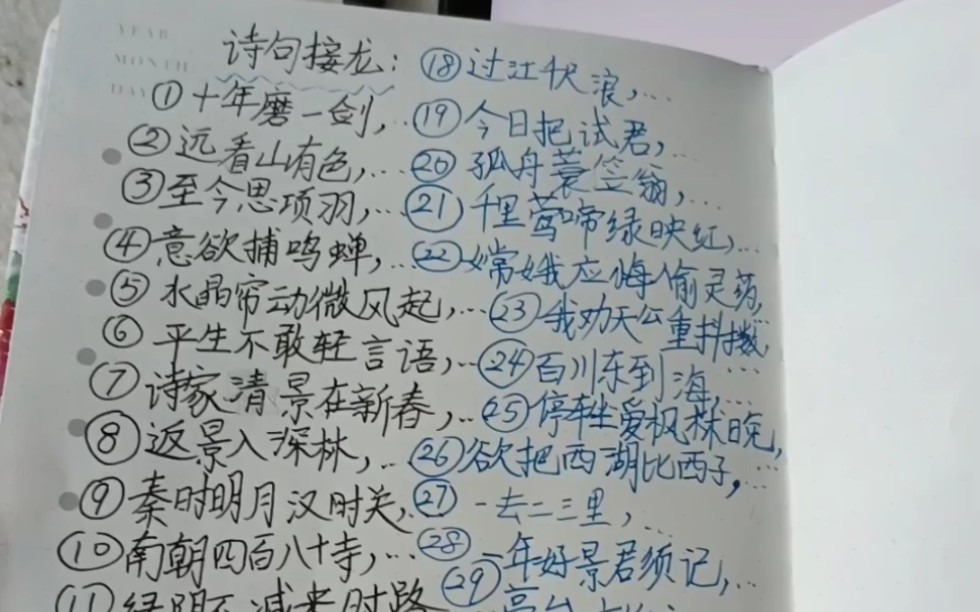 YEAR
MONTH
DAY
诗句接龙:
①十年磨一剑,...
②远看山有色,...
③至今思项羽,...
④意欲捕鸣蝉,...
⑤水晶帘动微风起,...
⑥平生不敢轻言语,...
⑦诗家清景在新春,...
⑧返景入深林,...
⑨秦时明月汉时关,
⑩南朝四百八十寺,...
⑪绿阴不减来时路
⑱过江千尺浪,...
⑲今日把试君,...
⑳孤舟蓑笠翁,...
㉑千里莺啼绿映红,...
㉒嫦娥应悔偷灵药,
㉓我劝天公重抖擞,...
㉔百川东到海,...
㉕停车坐爱枫林晚,
㉖欲把西湖比西子,...
㉗一去二三里,...
㉘一年好景君须记,...
㉙